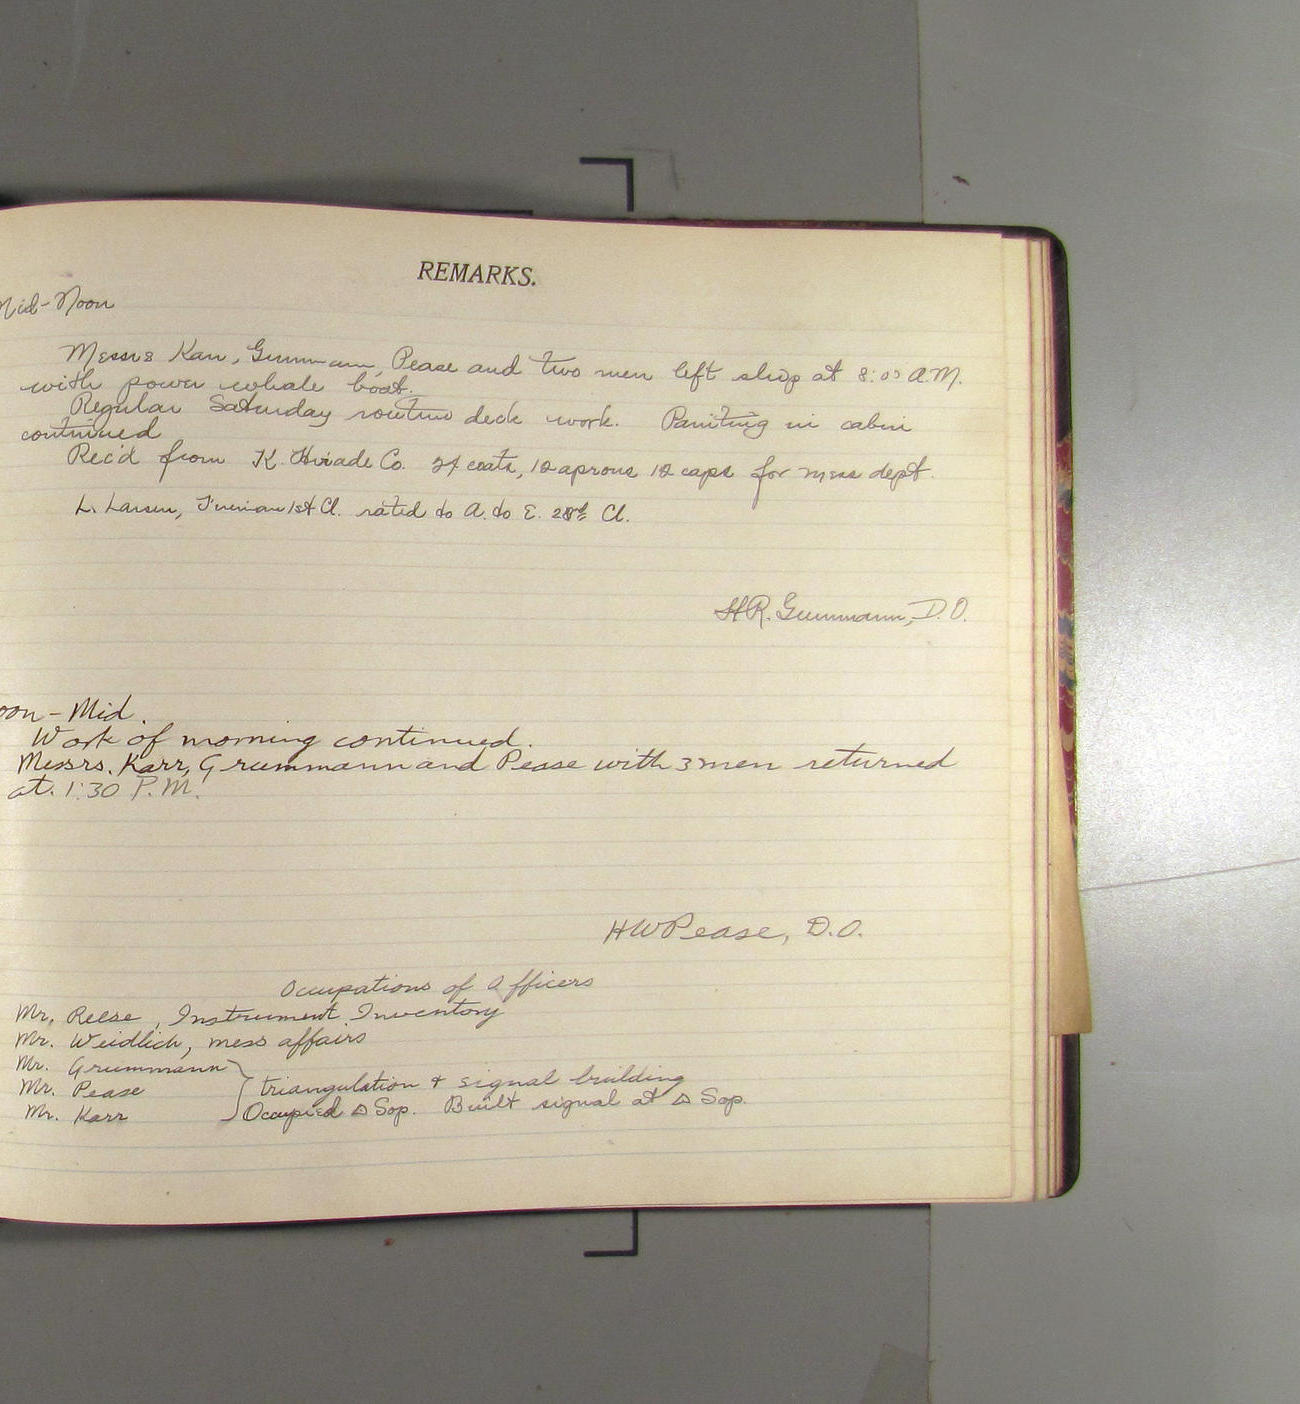 REMARKS.
Mid-Noon
Messrs Karr, Grummann, Pease and two men left ship at 8:00 A.M.
with power whale boat.
Regular Saturday routine deck work. Painting in cabin
continued
Rec'd from K. Co. 24 coats, 12 aprons 12 caps for mess dept.
L. Larsen, Fireman 1st Cl. rated to A. to E. Cl.
H.R. Grummann, D.O.
oon - Mid.
Work of morning continued.
Messrs. Karr, Grummann and Pease with 3 men returned
at 1:30 P.M.
HWPease, D.O.
Occupations of Officers
Mr. Reese, Instrument Inventory
Mr. Weidlich, mess affairs
Mr. Grummann
Mr. Pease } triangulation & signal building
Mr. Karr } Occupied △ Sop. Built signal at △ Sop.